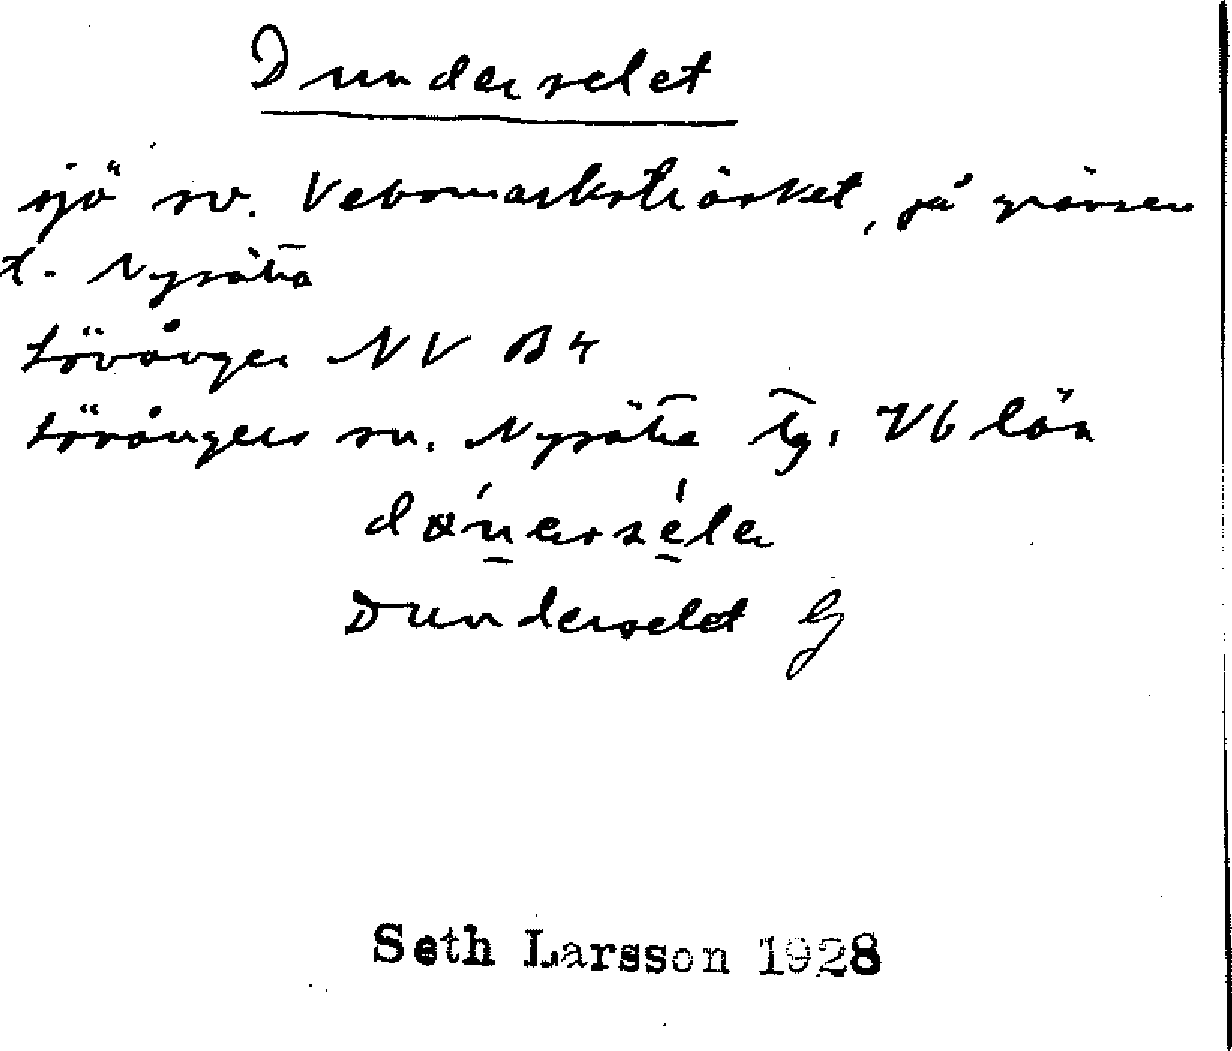 Dunderselet
sjö sv. Vebomarksträsket, på gränsen
t. Nysätra
Lövånger NV B4
Lövångers sn. Nysätra tg. Vb län
Dunderselet G
Seth Larsson 1928